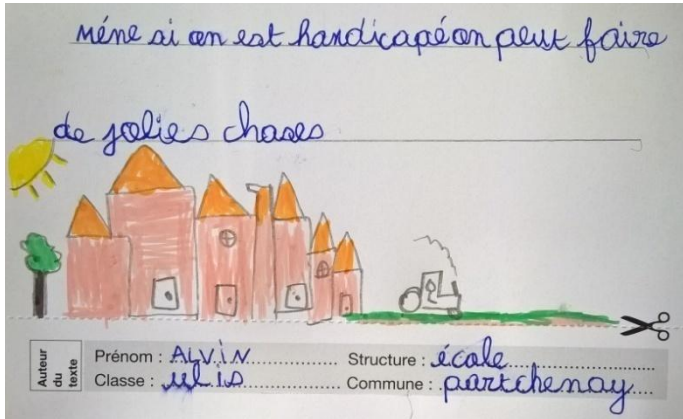 méne si on est handicapé on peut faire
de jolies choses
Auteur du texte
Prénom : ALVIN Structure : école
Classe : ULIS Commune : partchenay